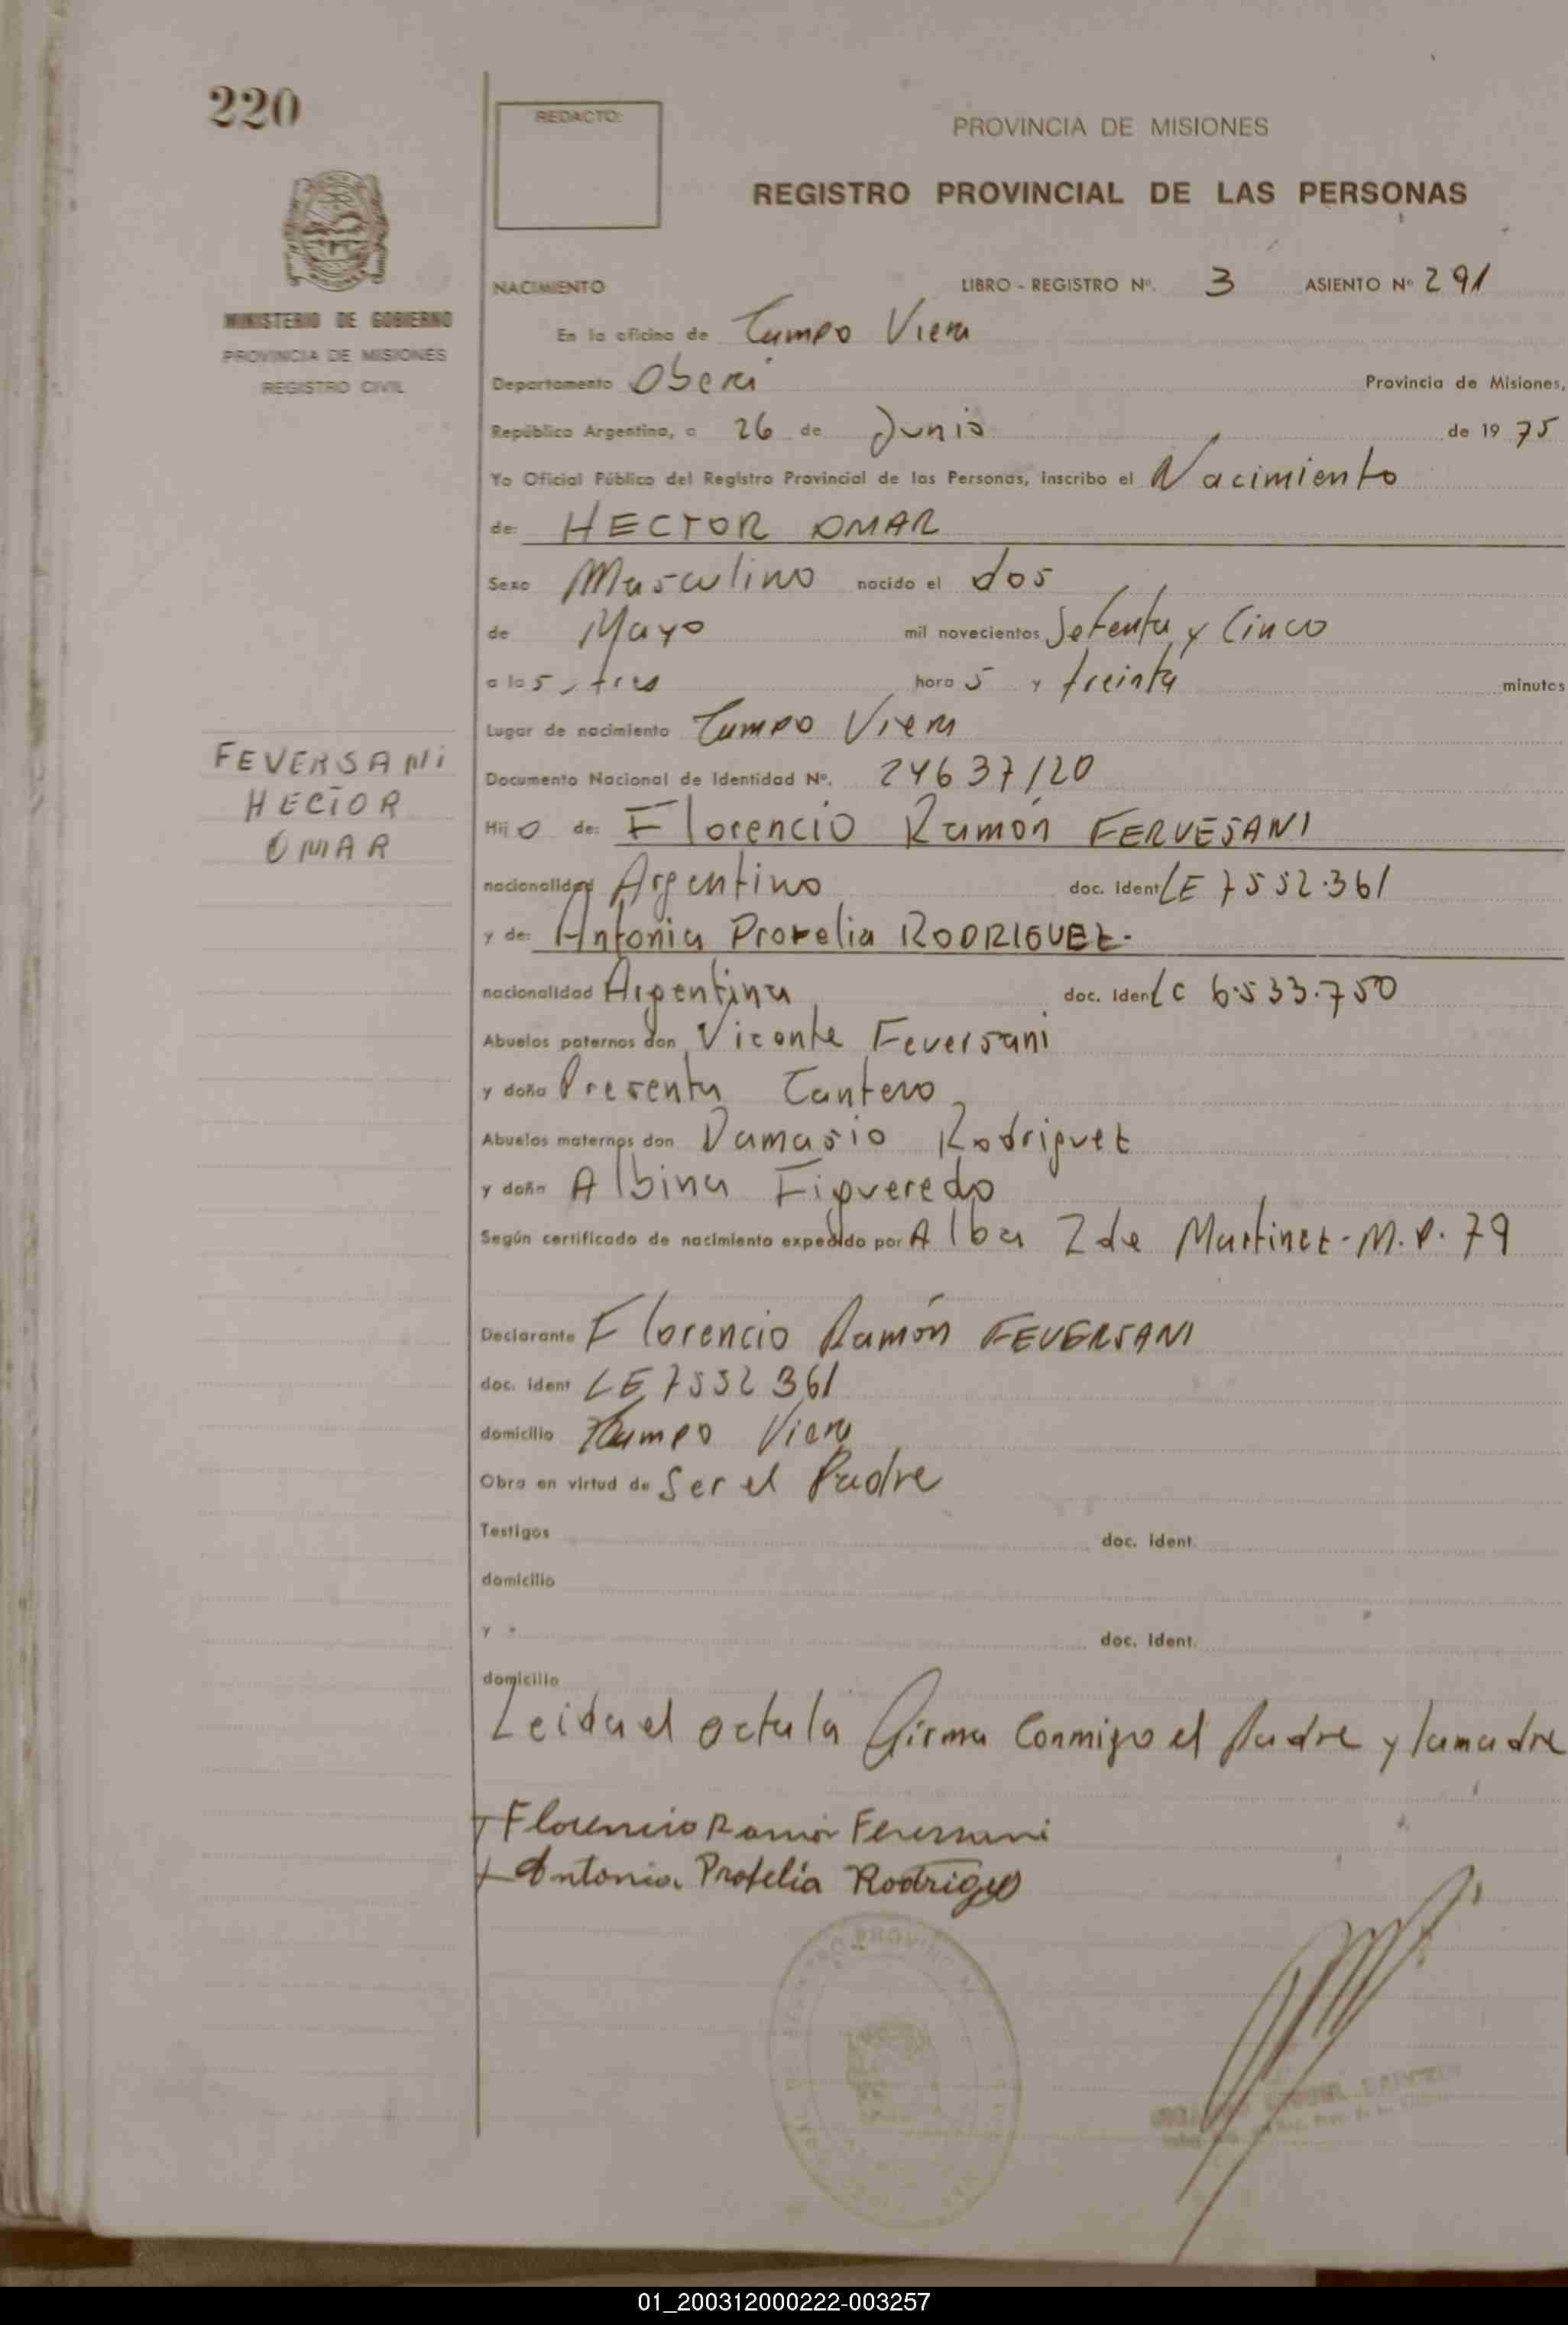 220
REDACTO:
PROVINCIA DE MISIONES
REGISTRO PROVINCIAL DE LAS PERSONAS
MINISTERIO DE GOBIERNO
PROVINCIA DE MISIONES
REGISTRO CIVIL
NACIMIENTO LIBRO - REGISTRO Nº. 3 ASIENTO Nº 291
En la oficina de Campo Viera
Departamento Oberá Provincia de Misiones,
República Argentina, a 26 de Junio de 1975
Yo Oficial Público del Registro Provincial de las Personas, inscribo el Nacimiento
de: HECTOR OMAR
Sexo Masculino nacido el dos
de Mayo mil novecientos Setenta y Cinco
a las tres horas y treinta minutos
Lugar de nacimiento Campo Viera
FEVERSANi
HECTOR
OMAR
Documento Nacional de Identidad Nº. 24637120
Hijo de: Florencio Ramón FERVESANI
nacionalidad Argentino doc. ident LE 7552.361
y de: Antonia Profelia RODRIGUEZ.
nacionalidad Argentina doc. iden LC 6.533.750
Abuelos paternos don Vicente Feversani
y doña Presenta Cantero
Abuelos maternos don Damasio Rodriguez
y doña Albina Figueredo
Según certificado de nacimiento expedido por Alba Z de Martinez - M.P. 79
Declarante Florencio Ramón FEVERSANI
doc. ident LE 7552361
domicilio Campo Viera
Obra en virtud de Ser el Padre
Testigos doc. ident.
domicilio
y doc. ident.
domicilio
Leida el acta la firma Conmigo el Padre y la madre
Florencio Ramón Feversani
Antonia Profelia Rodriguez
01_200312000222-003257